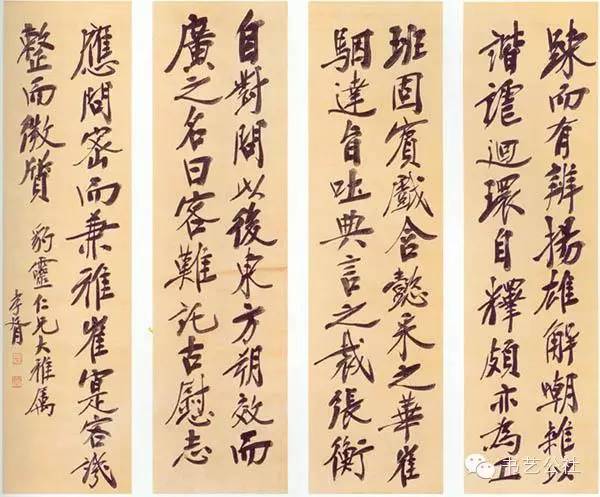 踈而有辨揚雄解嘲雜以
諧謔迴環自釋頗亦為工
班固賓戲含懿采之華崔
駰達旨吐典言之裁張衡
自對問以後東方朔效而
廣之名曰客難託古慰志
應問密而兼雅崔寔客譏
整而微質
豹靈仁兄大雅属
孝胥
书艺公社